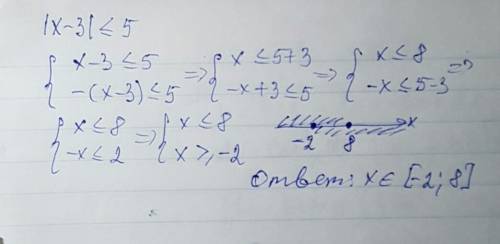 |x-3| ≤ 5
{ x-3 ≤ 5 -(x-3) ≤ 5 => { x ≤ 5+3 -x+3 ≤ 5 => { x ≤ 8 -x ≤ 5-3 =>
{ x ≤ 8 -x ≤ 2 => { x ≤ 8 x ≥ -2 -2 8 x
Ответ: x ∈ [-2; 8]